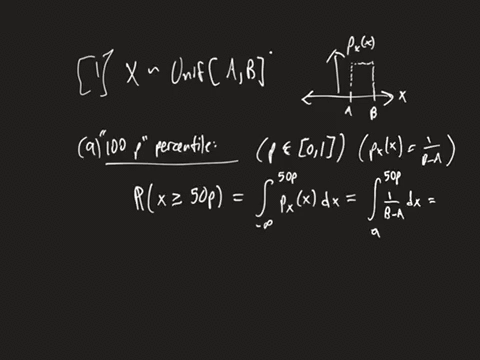 [1] X ~ Unif[A,B]
p_x(x)
A B x
(a) "100 p" percentile: (p ∈ [0,1]) (p_x(x) = 1/(B-A))
P(x ≥ 50p) = ∫_{-∞}^{50p} p_x(x) dx = ∫_{a}^{50p} 1/(B-A) dx =